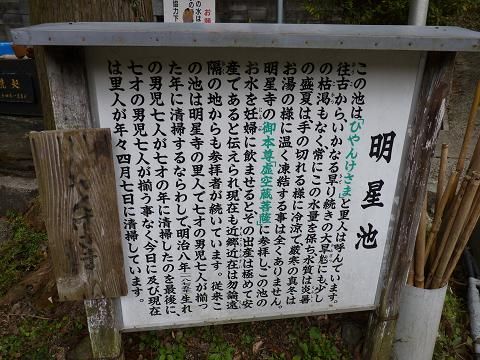 明星池
この池は「びやんけさま」と里人は呼んでいます。
往古から、いかなる旱り続きの大旱魃にも少し
の枯渇もなく常にこの水量を保ち水質は炎暑
の盛夏は手の切れる様に冷涼で厳寒の真冬は
お湯の様に温く凍結する事は全くありません。
明星寺の御本尊虚空蔵菩薩に参拝しこの池の
お水を妊婦に飲ませるとその出産は極めて安
産であると伝えられ現在も近郷近在は勿論遠
隔の地からも参拝者が続いています。従来こ
の池は明星寺の里人で七才の男児七人が揃っ
た年に清掃するならわしで明治八年生れ
の男児七人が七才の年に清掃したのを最後に、
七才の男児七人が揃う事なく今日に及び現在
は里人が年々四月七日に清掃しています。
びやんけさま